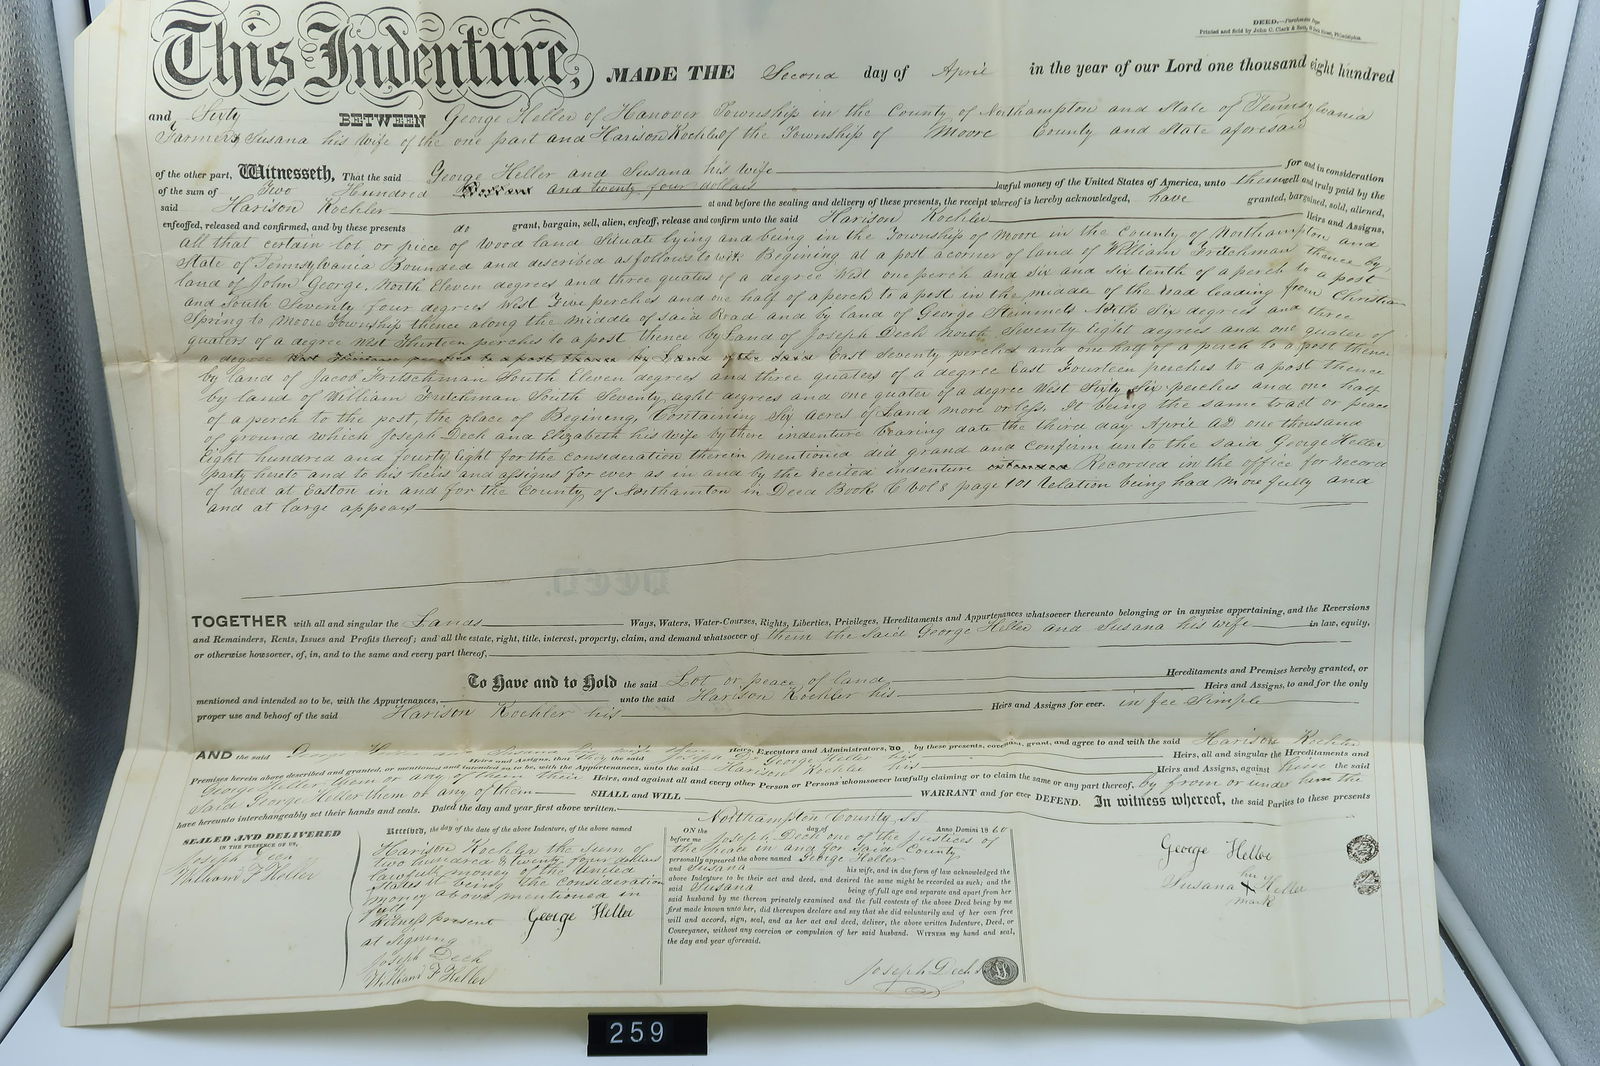 DEED.—Purchasers
Printed and Sold by John C. Clark & Sons, Philadelphia.
This Indenture, MADE THE Second day of April in the year of our Lord one thousand eight hundred
and Sixty BETWEEN George Heller of Hanover Township in the County of Northampton and State of Pennsylvania
Farmer & Susana his Wife of the one part and Harison Koehler of the Township of Moore County and State aforesaid
of the other part, Witnesseth, That the said George Heller and Susana his wife for and in consideration
of the sum of Two Hundred and twenty four dollars lawful money of the United States of America, unto them well and truly paid by the
said Harison Koehler at and before the sealing and delivery of these presents, the receipt whereof is hereby acknowledged, have granted, bargained, sold, aliened,
enfeoffed, released and confirmed, and by these presents do grant, bargain, sell, alien, enfeoff, release and confirm unto the said Harison Koehler Heirs and Assigns,
all that certain lot or piece of wood land Situate lying and being in the Township of Moore in the County of Northampton and
State of Pennsylvania Bounded and described as follows to wit: Begining at a post a corner of land of William Fritchman thence by
land of John George, North Eleven degrees and three quaters of a degree West one perch and Six and Six tenth of a perch to a post
and South Seventy four degrees West Five perches and one half of a perch to a post in the middle of the road leading from Christian
Spring to Moore Township thence along the middle of said Road and by land of George North Six degrees and three
quaters of a degree West Thirteen perches to a post thence by Land of Joseph Dech North Seventy Eight degrees and one quater of
a degree East Seventy perches and one half of a perch to a post thence
by land of Jacob Fritschman South Eleven degrees and three quaters of a degree East Fourteen perches to a post thence
by land of William Fritchman South Seventy eight degrees and one quater of a degree West Sixty Six perches and one half
of a perch to the post, the place of Begining, Containing Six acres of Land more or less. It being the same tract or peace
of ground which Joseph Dech and Elizabeth his Wife by there indenture bearing date the third day April AD one thousand
Eight hundred and fourty Eight for the consideration therein mentioned did grand and Confirm unto the said George Heller
party hereto and to his heirs and assigns for ever as in and by the recited indenture Recorded in the office for record
of deed at Easton in and for the County of Northamton in Deed Book C vol 8 page 101 Relation being had more fully and
and at large appears
DEED.
TOGETHER with all and singular the Lands Ways, Waters, Water-Courses, Rights, Liberties, Privileges, Hereditaments and Appurtenances whatsoever thereunto belonging or in anywise appertaining, and the Reversions
and Remainders, Rents, Issues and Profits thereof; and all the estate, right, title, interest, property, claim, and demand whatsoever of them the said George Heller and Susana his wife in law, equity,
or otherwise howsoever, of, in, and to the same and every part thereof,
To Have and to Hold the said Lot or peace of land Hereditaments and Premises hereby granted, or
mentioned and intended so to be, with the Appurtenances, unto the said Harison Koehler his Heirs and Assigns, to and for the only
proper use and behoof of the said Harison Koehler his Heirs and Assigns for ever. in fee Simple
AND the said Heirs, Executors and Administrators, do by these presents, covenant, grant, and agree to and with the said Harison Koehler
Heirs and Assigns, that they the said George Heller his Heirs, all and singular the Hereditaments and
Premises herein above described and granted, or mentioned and intended so to be, with the Appurtenances, unto the said Harison Koehler his Heirs and Assigns, against the said
George Heller them or any of them their Heirs, and against all and every other Person or Persons whomsoever lawfully claiming or to claim the same or any part thereof, by from or under him the
Said George Heller them or any of them SHALL and WILL WARRANT and for ever DEFEND. In witness whereof, the said Parties to these presents
have hereunto interchangeably set their hands and seals. Dated the day and year first above written.
SEALED AND DELIVERED
IN THE PRESENCE OF US,
Joseph Dech
William F Heller
Received, the day of the date of the above Indenture, of the above named
Harison Koehler the sum of
two hundred & twenty four dollars
lawfuly money of the United
States it being the consideration
money above mentioned in
full
Witness present George Heller
at Signing
Joseph Dech
William F Heller
Northampton County, ss
ON the day of Anno Domini 1860
before me Joseph Dech one of the Justices of
the Peace in and for Said County
personally appeared the above named George Heller
and Susana his wife, and in due form of law acknowledged the
above Indenture to be their act and deed, and desired the same might be recorded as such; and the
said Susana being of full age and separate and apart from her
said husband by me thereon privately examined and the full contents of the above Deed being by me
first made known unto her, did thereupon declare and say that she did voluntarily and of her own free
will and accord, sign, seal, and as her act and deed, deliver, the above written Indenture, Deed, or
Conveyance, without any coercion or compulsion of her said husband. WITNESS my hand and seal,
the day and year aforesaid.
Joseph Dech
George Heller
her
Susana X Heller
mark
259